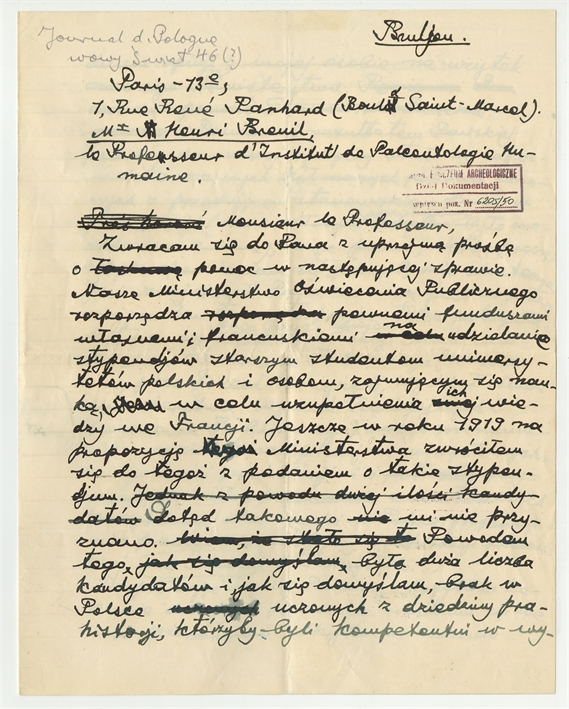 Journal d. Pologne
nowy Świat 46 (?)
Bruljon.
Paris - 13e,
1, Rue René Panhard (Boul. Saint-Marcel).
Mr Henri Breuil,
le Professeur d'Institut de Paleontologie Hu-
maine.
MUZEUM ARCHEOLOGICZNE
Dział Dokumentacji
wpływu poz. Nr 6205/50
Monsieur le Professeur,
Zwracam się do Pana z uprzejmą prośbą
o pomoc w następującej sprawie.
Nasze Ministerstwo Oświecenia Publicznego
rozporządza pewnemi funduszami
własnemi i francuskiemi na udzielanie
stypendjów starszym studentom uniwersy-
tetów polskich i osobom, zajmującym się nau-
ką, w celu uzupełnienia ich wie-
dzy we Francji. Jeszcze w roku 1919 na
propozycję Ministerstwa zwróciłem
się do tegoż z podaniem o takie stypen-
djum. Jednak z powodu dużej ilości kandy-
datów Dotąd takowego mi nie przy-
znano. Powodem
tego, jak się domyślam, była duża liczba
kandydatów i jak się domyślam, brak w
Polsce uczonych uczonych z dziedziny pra-
historji, którzyby byli kompetentni w wy-